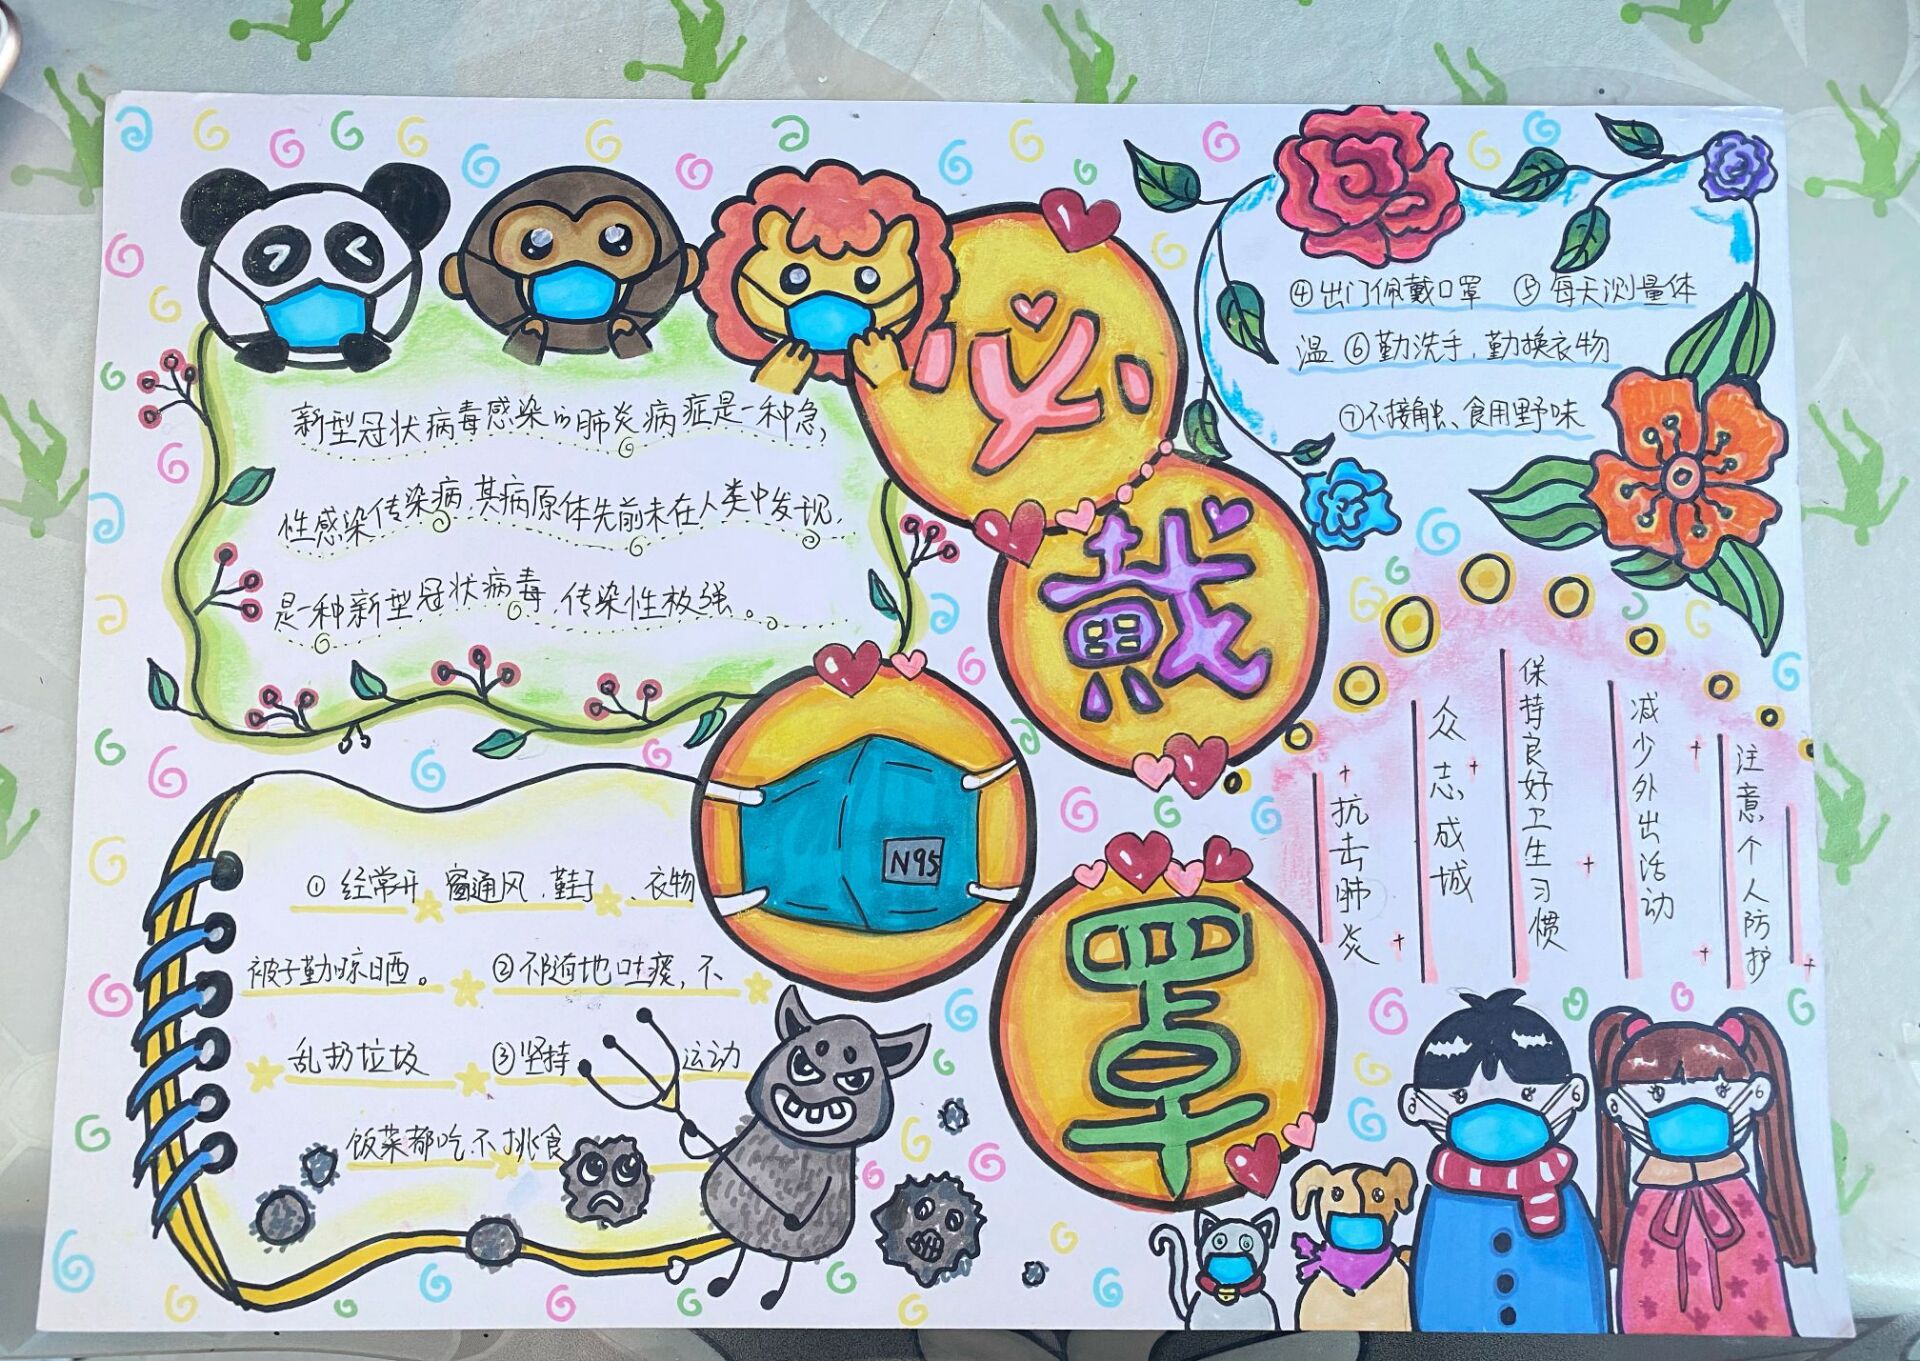 新型冠状病毒感染的肺炎病症是一种急,
性感染传染病,其病原体先前未在人类中发现,
是一种新型冠状病毒,传染性极强。
必
戴
罩
N95
④出门佩戴口罩 ⑤每天测量体
温 ⑥勤洗手,勤换衣物
⑦不接触、食用野味
①经常开窗通风,鞋子、衣物
被子勤晾晒。 ②不随地吐痰,不
乱扔垃圾 ③坚持 运动
饭菜都吃,不挑食
抗击肺炎
众志成城
保持良好卫生习惯
减少外出活动
注意个人防护